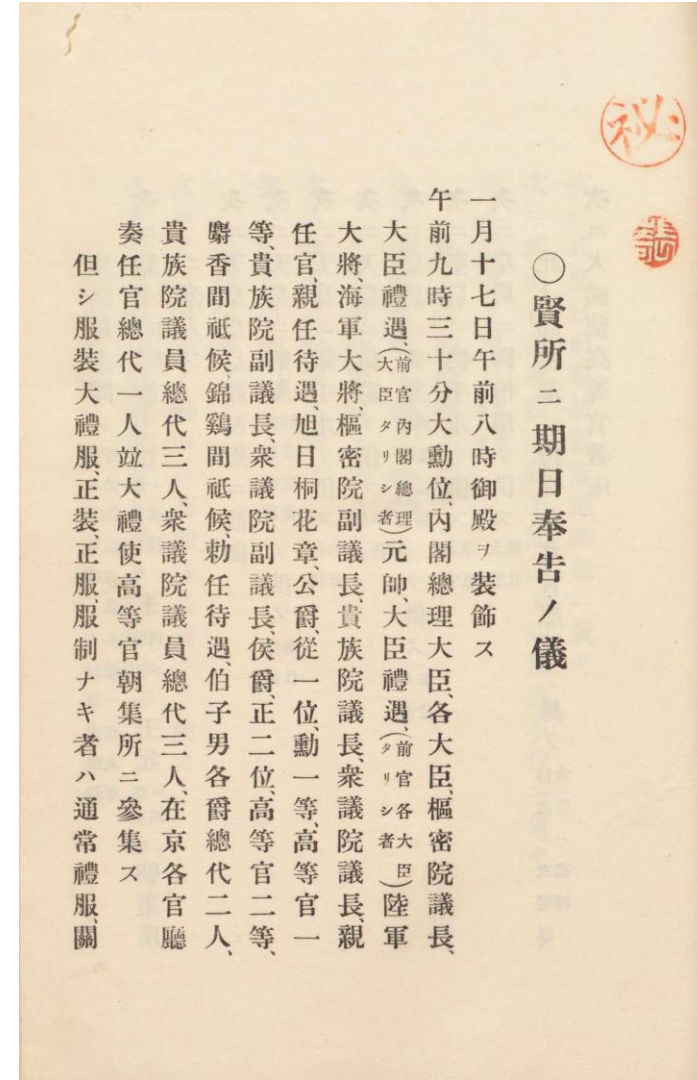 秘
〇賢所ニ期日奉告ノ儀
一月十七日午前八時御殿ヲ裝飾ス
午前九時三十分大勳位、內閣總理大臣、各大臣、樞密院議長、
大臣禮遇、(前官內閣總理大臣タリシ者)元帥、大臣禮遇、(前官各大臣タリシ者)陸軍
大將、海軍大將、樞密院副議長、貴族院議長、衆議院議長、親
任官、親任待遇、旭日桐花章、公爵、從一位、勳一等、高等官一
等、貴族院副議長、衆議院副議長、侯爵、正二位、高等官二等、
麝香間祗候、錦鷄間祗候、勅任待遇、伯子男各爵總代二人、
貴族院議員總代三人、衆議院議員總代三人、在京各官廳
奏任官總代一人竝大禮使高等官朝集所ニ參集ス
但シ服裝大禮服、正裝、正服、服制ナキ者ハ通常禮服、關